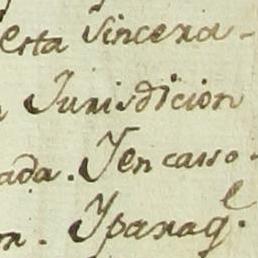 esta sincera-
Jurisdicion
ada. Y en caso
n. Y para q.^e